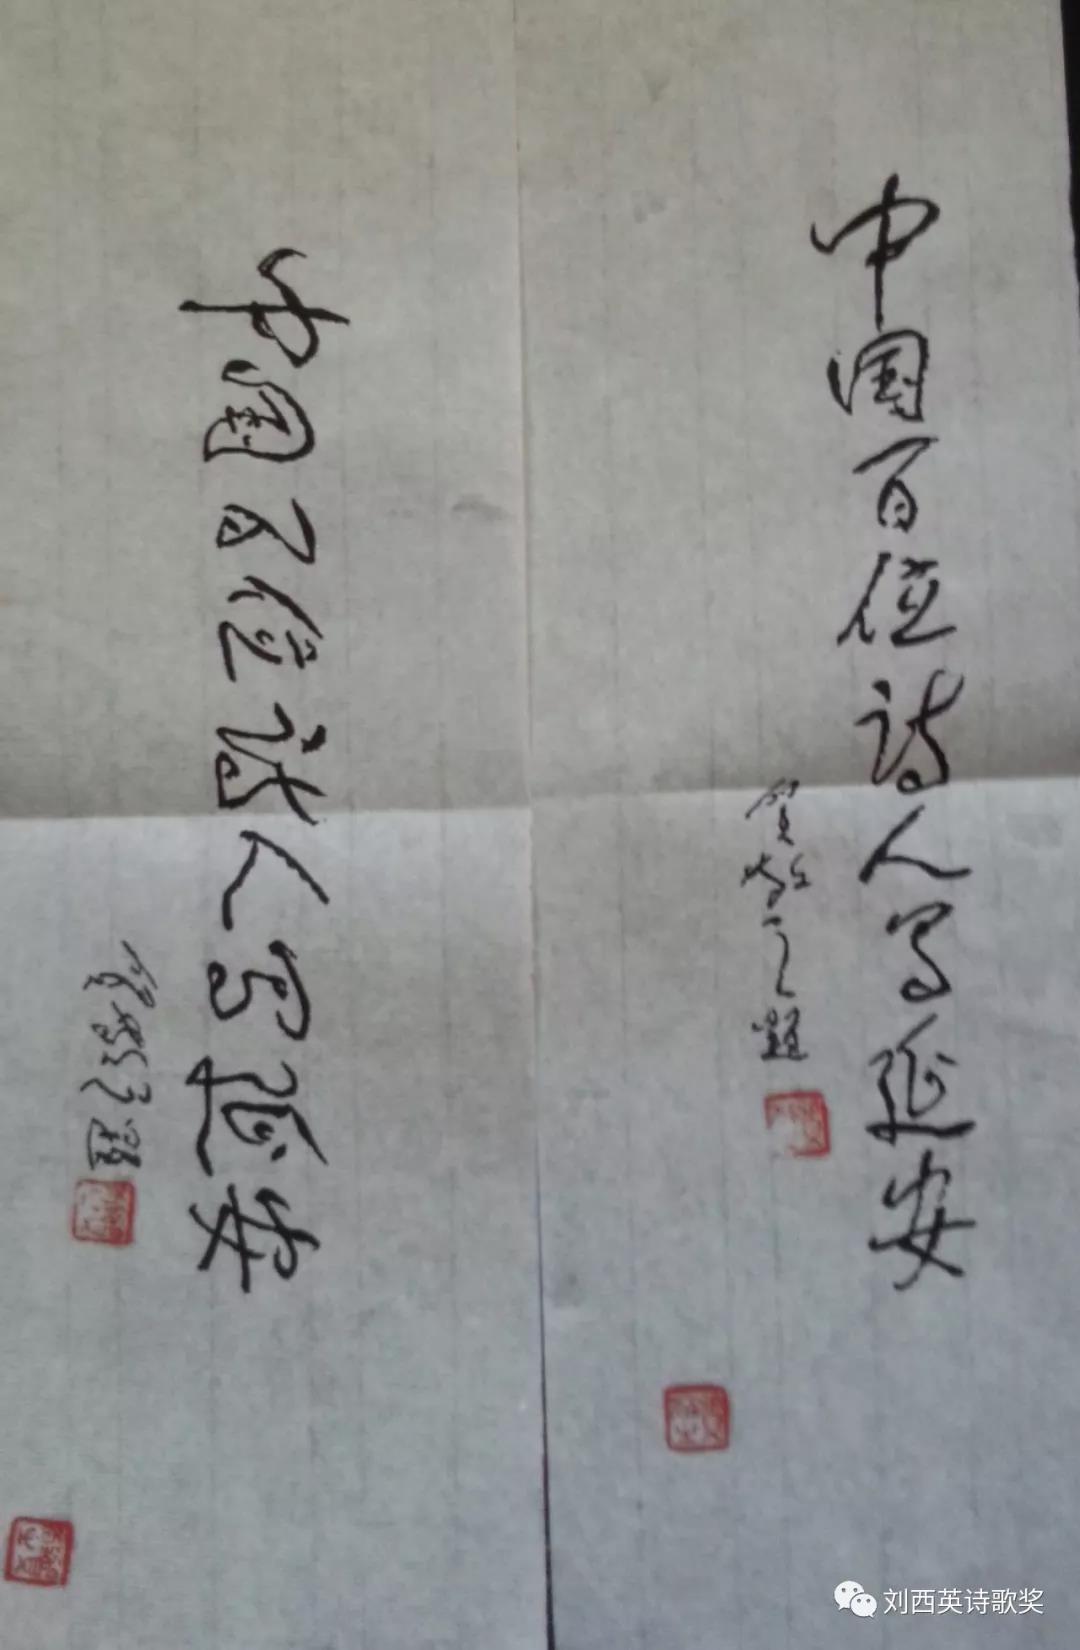 中国百位诗人写延安
贺敬之题
中国百位诗人写延安
贺敬之题
刘西英诗歌奖